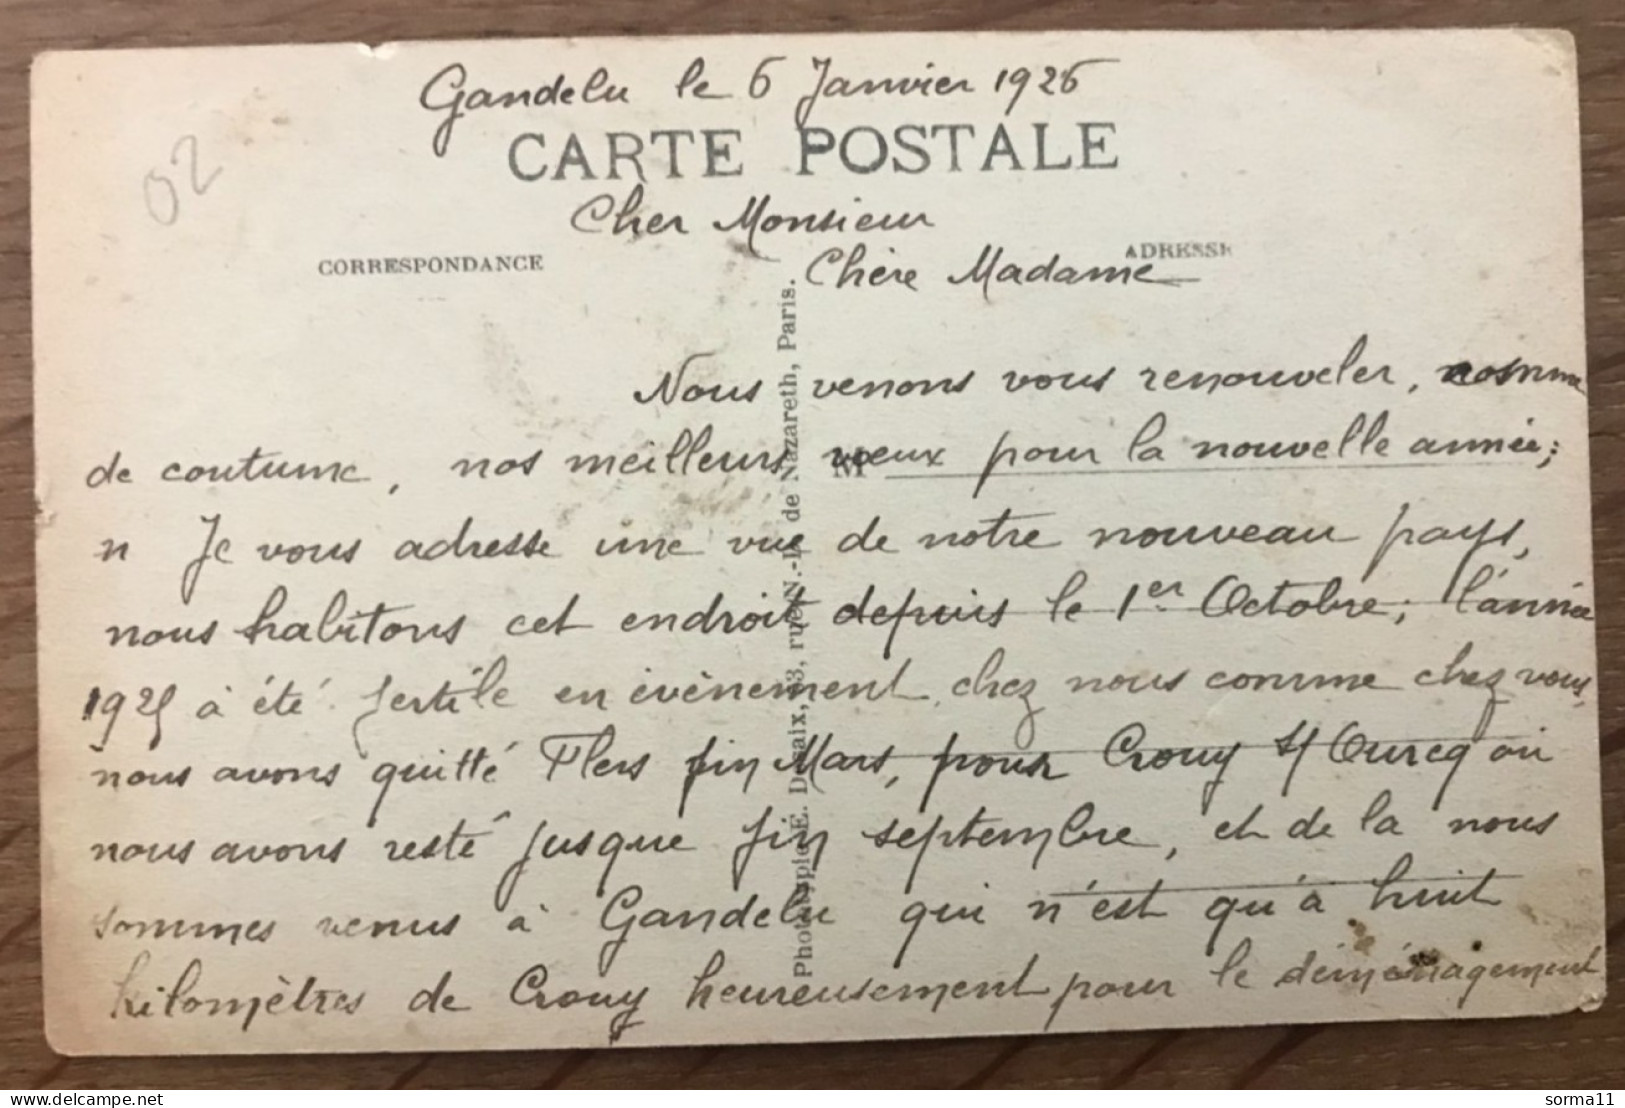 Gandelu le 6 Janvier 1926
02
CARTE POSTALE
Cher Monsieur
CORRESPONDANCE
ADRESSE
Chère Madame
Nous venons vous renouveler, comme
de coutume, nos meilleurs vœux pour la nouvelle année;
M
n Je vous adresse une vue de notre nouveau pays,
nous habitons cet endroit depuis le 1er Octobre; l'année
1925 à été fertile en évènement chez nous comme chez vous,
nous avons quitté Flers fin Mars, pour Crouy s/ Ourcq où
nous avons resté jusque fin septembre, et de la nous
sommes venus à Gandelu qui n'est qu'à huit
kilomètres de Crouy heureusement pour le déménagement
Phototypie É. Desaix, 13, rue N.-D. de Nazareth, Paris.
delcampe.net
sorma11